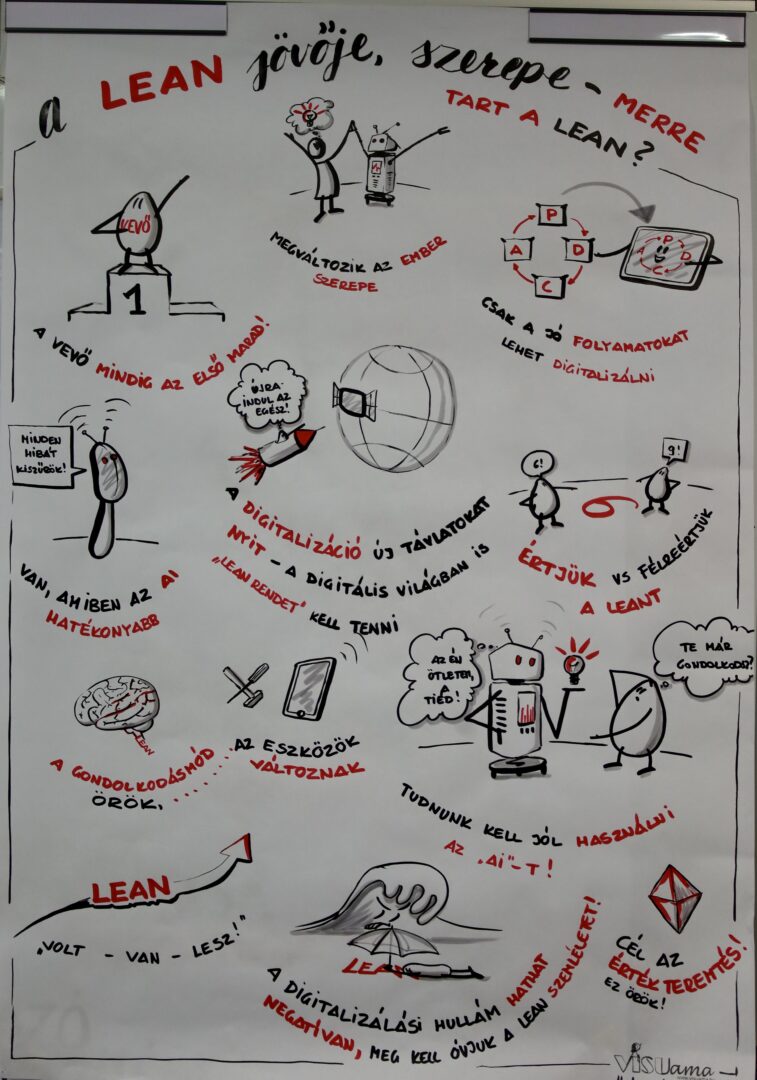 a LEAN jövője, szerepe - MERRE
TART A LEAN?
KEVŐ
1
A VEVŐ MINDIG AZ ELSŐ MARAD!
MEGVÁLTOZIK AZ EMBER
SZEREPE
P
A D
C
P
A D
C
CSAK A JÓ FOLYAMATOKAT
LEHET DIGITALIZÁLNI
MINDEN
HIBÁT
KISZŰRÖK!
VAN, AMIBEN AZ AI
HATÉKONYABB
ÚJRA-
INDUL AZ
EGÉSZ!
A DIGITALIZÁCIÓ ÚJ TÁVLATOKAT
NYIT - A DIGITÁLIS VILÁGBAN IS
"LEAN RENDET" KELL TENNI
6!
9!
ÉRTJÜK VS FÉLREÉRTJÜK
A LEANT
LEAN
A GONDOLKODÁSMÓD
ÖRÖK, ........
AZ ESZKÖZÖK
VÁLTOZNAK
AZ ÉN
ÖTLETEM,
A
TIÉD!
TE MÁR
GONDOLKODSZ?
TUDNUNK KELL JÓL HASZNÁLNI
AZ "AI"-T!
LEAN
"VOLT - VAN - LESZ!"
LEAN
A DIGITALIZÁLÁSI HULLÁM HATHAT
NEGATÍVAN, MEG KELL ÓVJUK A LEAN SZEMLÉLETET!
CÉL AZ
ÉRTÉKTEREMTÉS!
EZ ÖRÖK!
visuama